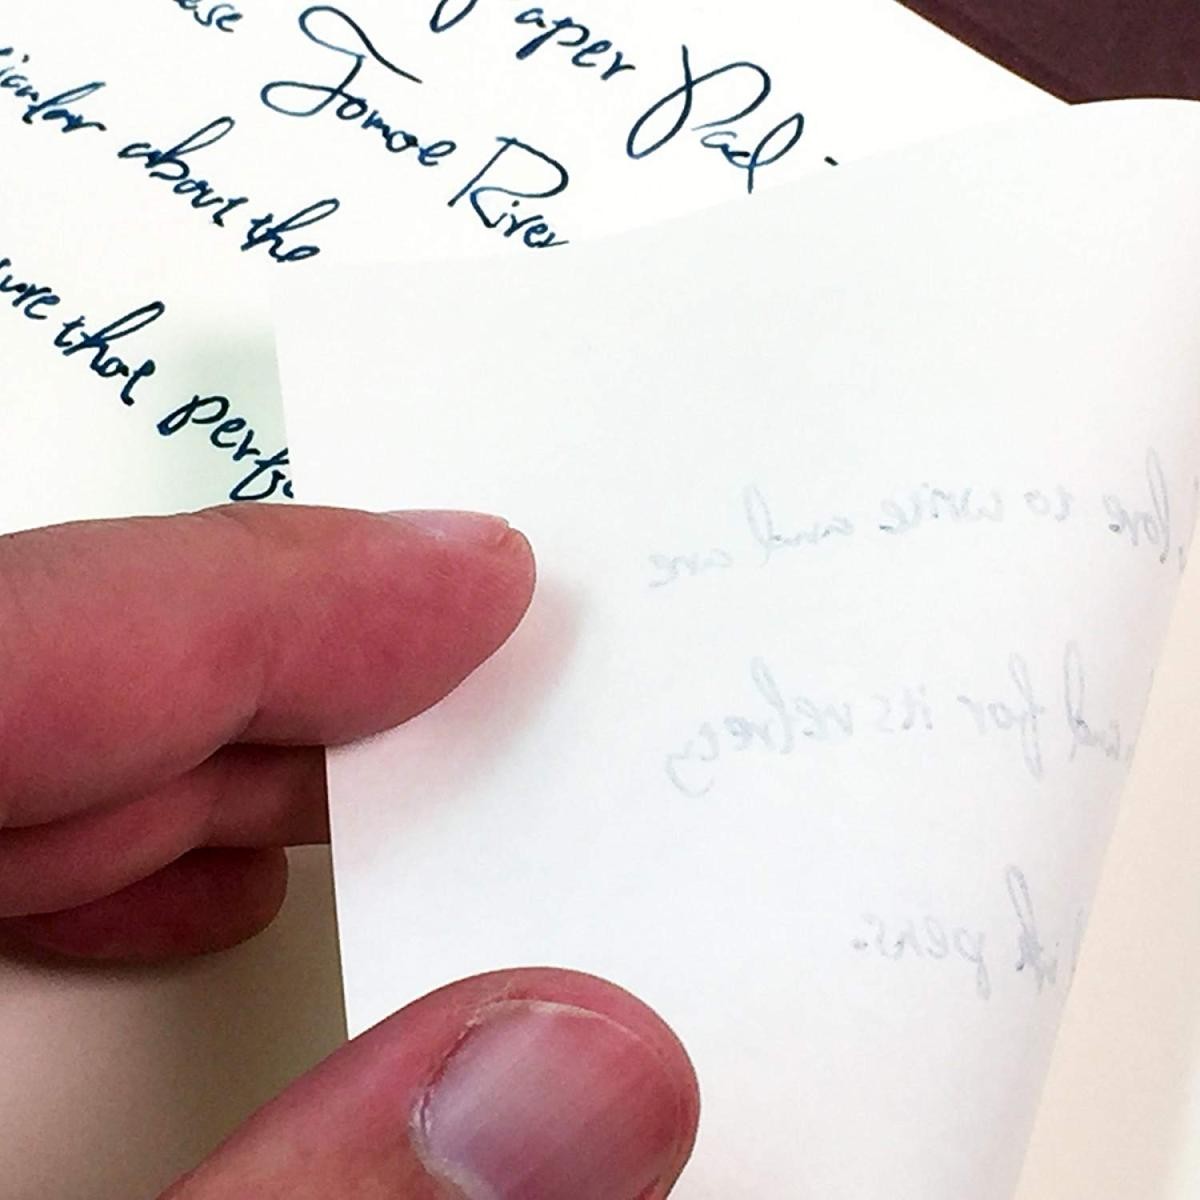 aper Pad.
ase Tomoe River
icular about the
sure that perfe
love to write and are
nd for its velvety
ink pens.